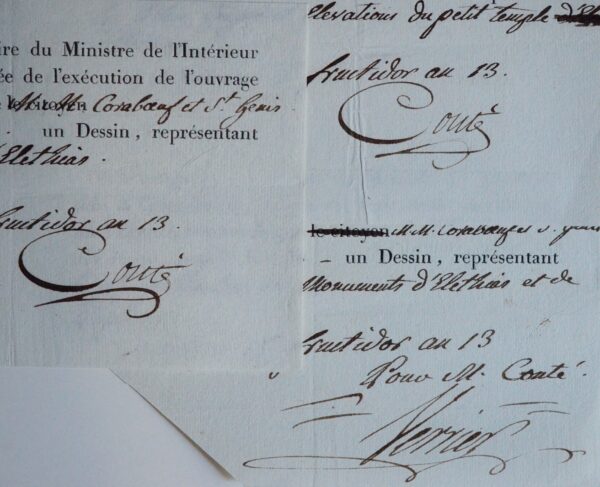 ire du Ministre de l'Intérieur
ée de l'exécution de l'ouvrage
le citoyen M. M. Corabœuf et St. Genis
un Dessin, représentant
Elethias.
fructidor au 13.
Conté
élévations du petit temple
fructidor an 13.
Conté
le citoyen M. M. Corabœuf et S. genis
un Dessin, représentant
Monuments d'Elethias et de
fructidor an 13
Pour M. Conté.
Verrier